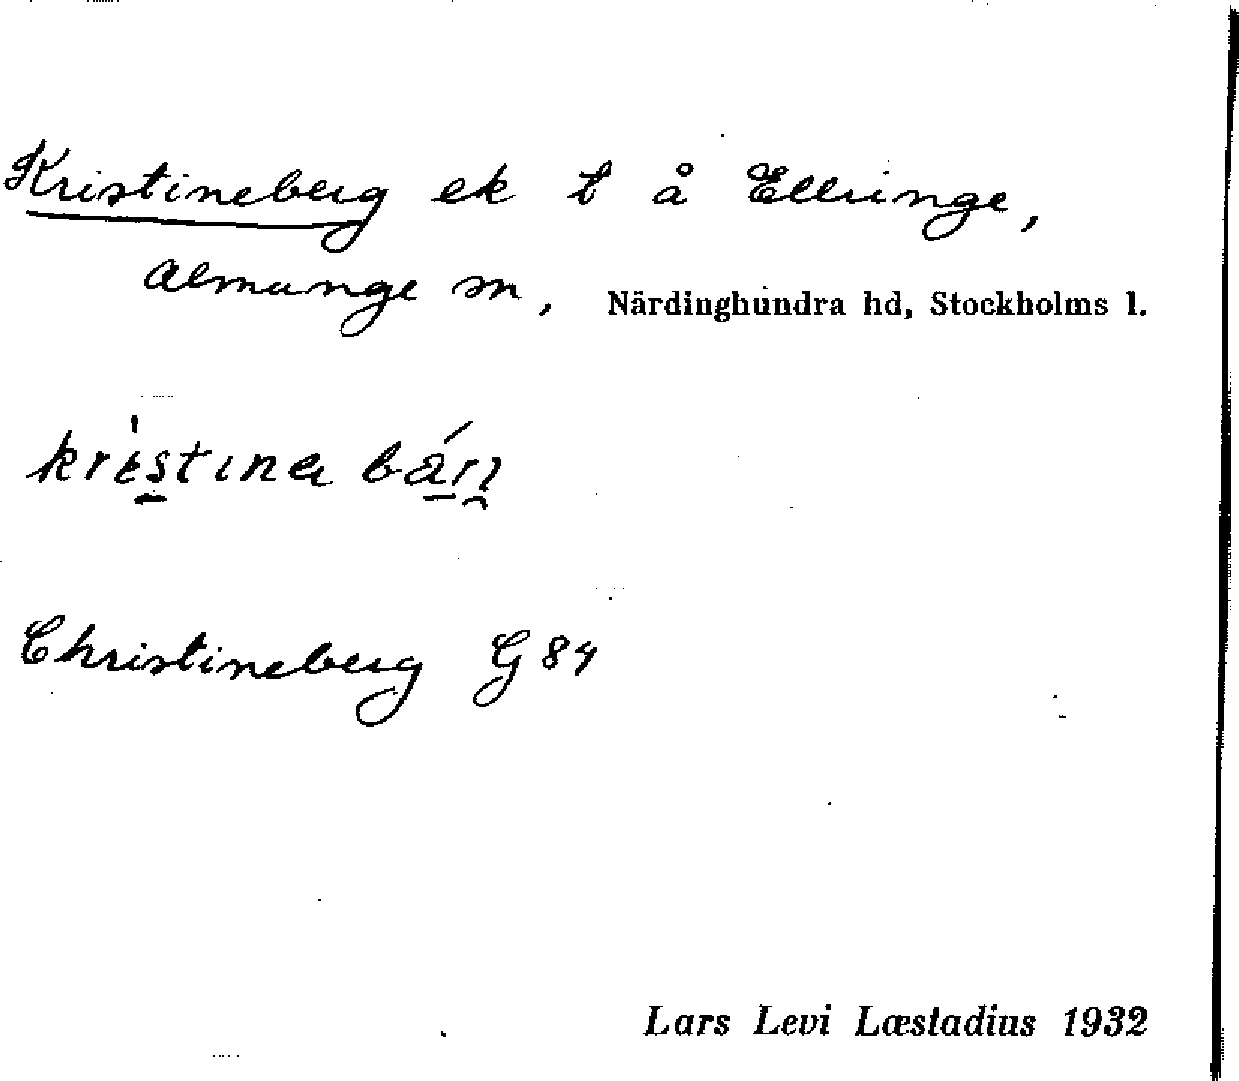 Kristineberg ek t å Ellringe,
Almunge sn, Närdinghundra hd, Stockholms l.
Christineberg G 84
Lars Levi Læstadius 1932